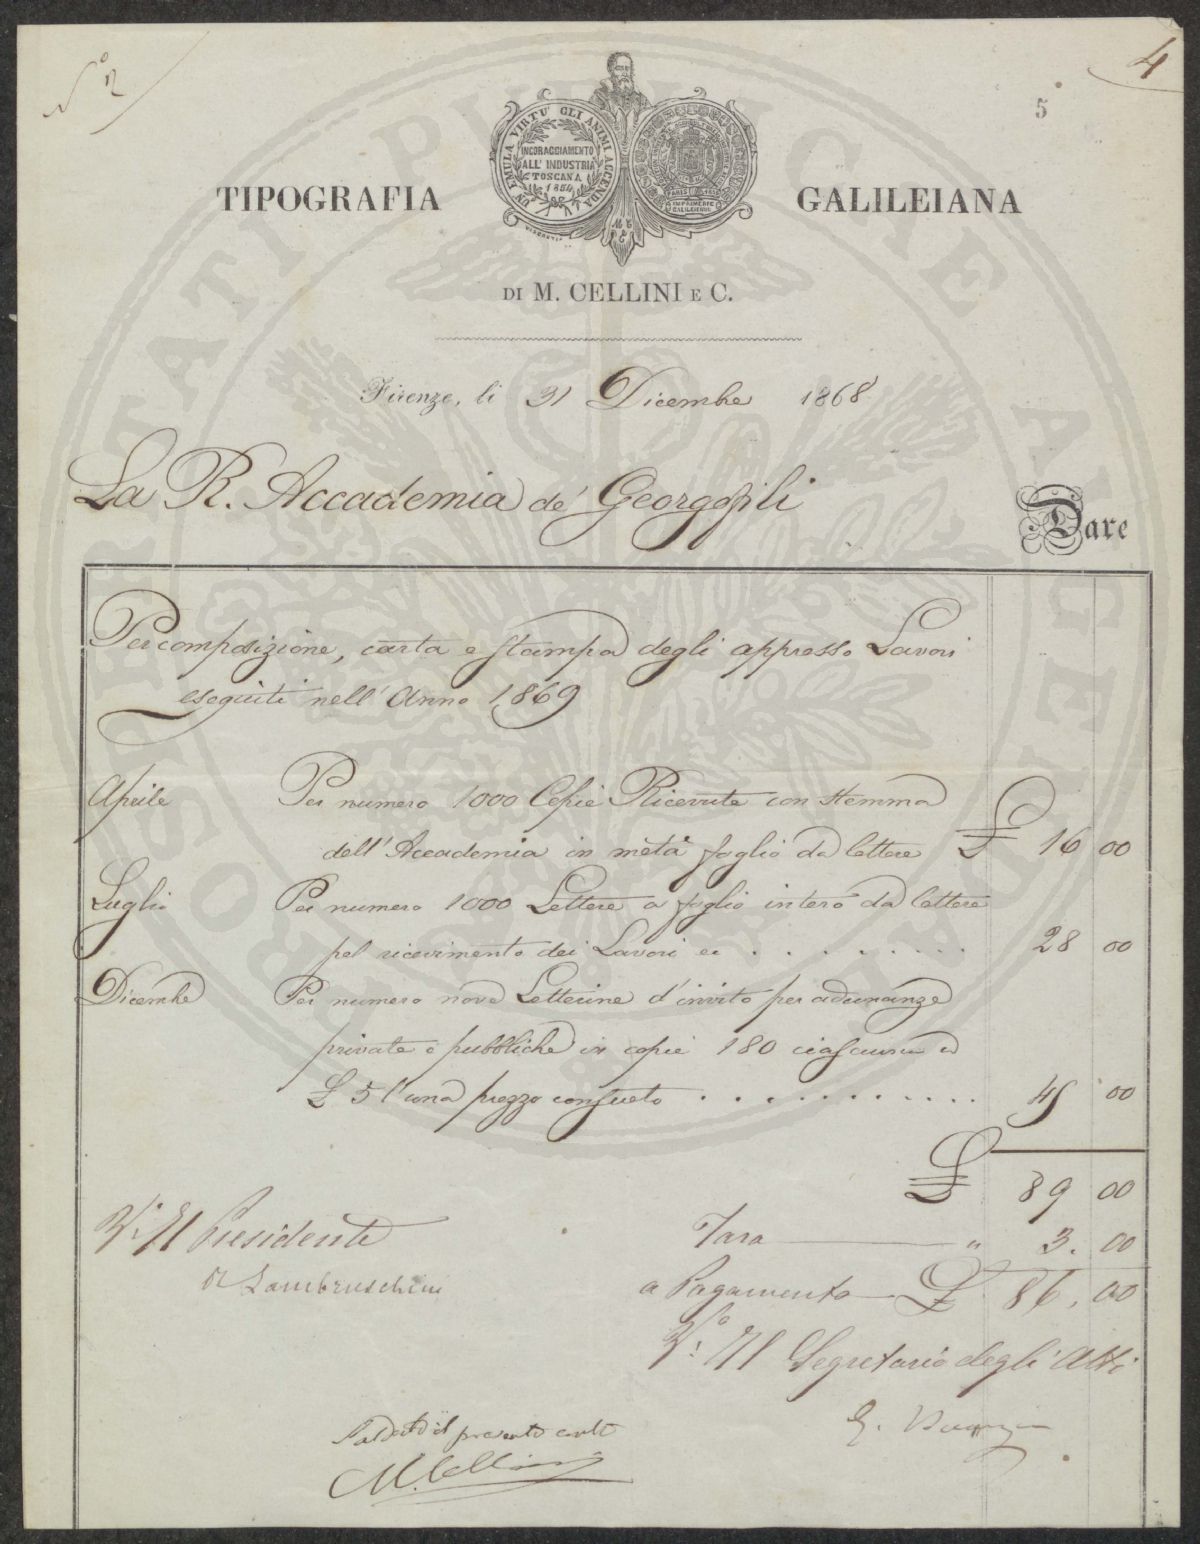 N.º 2
4
5
UN'EMULA VIRTU' GLI ANIMI ACCENDA
INCORAGGIAMENTO
ALL' INDUSTRIA
TOSCANA
1854
PARIS
IMPRIMERIE
GALILEIENNE
TIPOGRAFIA GALILEIANA
DI M. CELLINI E C.
Firenze, li 31 Dicembre 1868
La R. Accademia de' Georgofili
Dare
Per composizione, carta e stampa degli appresso Lavori
eseguiti nell' Anno 1869
Aprile Per numero 1000 Copie Ricevute con stemma
dell' Accademia in metà foglio da lettere £ 16 00
Luglio Per numero 1000 Lettere a foglio intero da lettere
pel ricevimento dei Lavori ec . . . . . . . . . 28 00
Dicembre Per numero nove Letterine d'invito per adunanze
private e pubbliche in copie 180 ciascuna a
£ 5 l'una prezzo consueto . . . . . . . . . . . 45 00
£ 89 00
V.º Il Presidente Tara — " 3. 00
R Lambruschini a Pagamento — £ 86, 00
V.º Il Segretario degli Atti
Saldato il presente conto
M. Cellini
PROSPERITATI PUBLICAE AUGENDAE